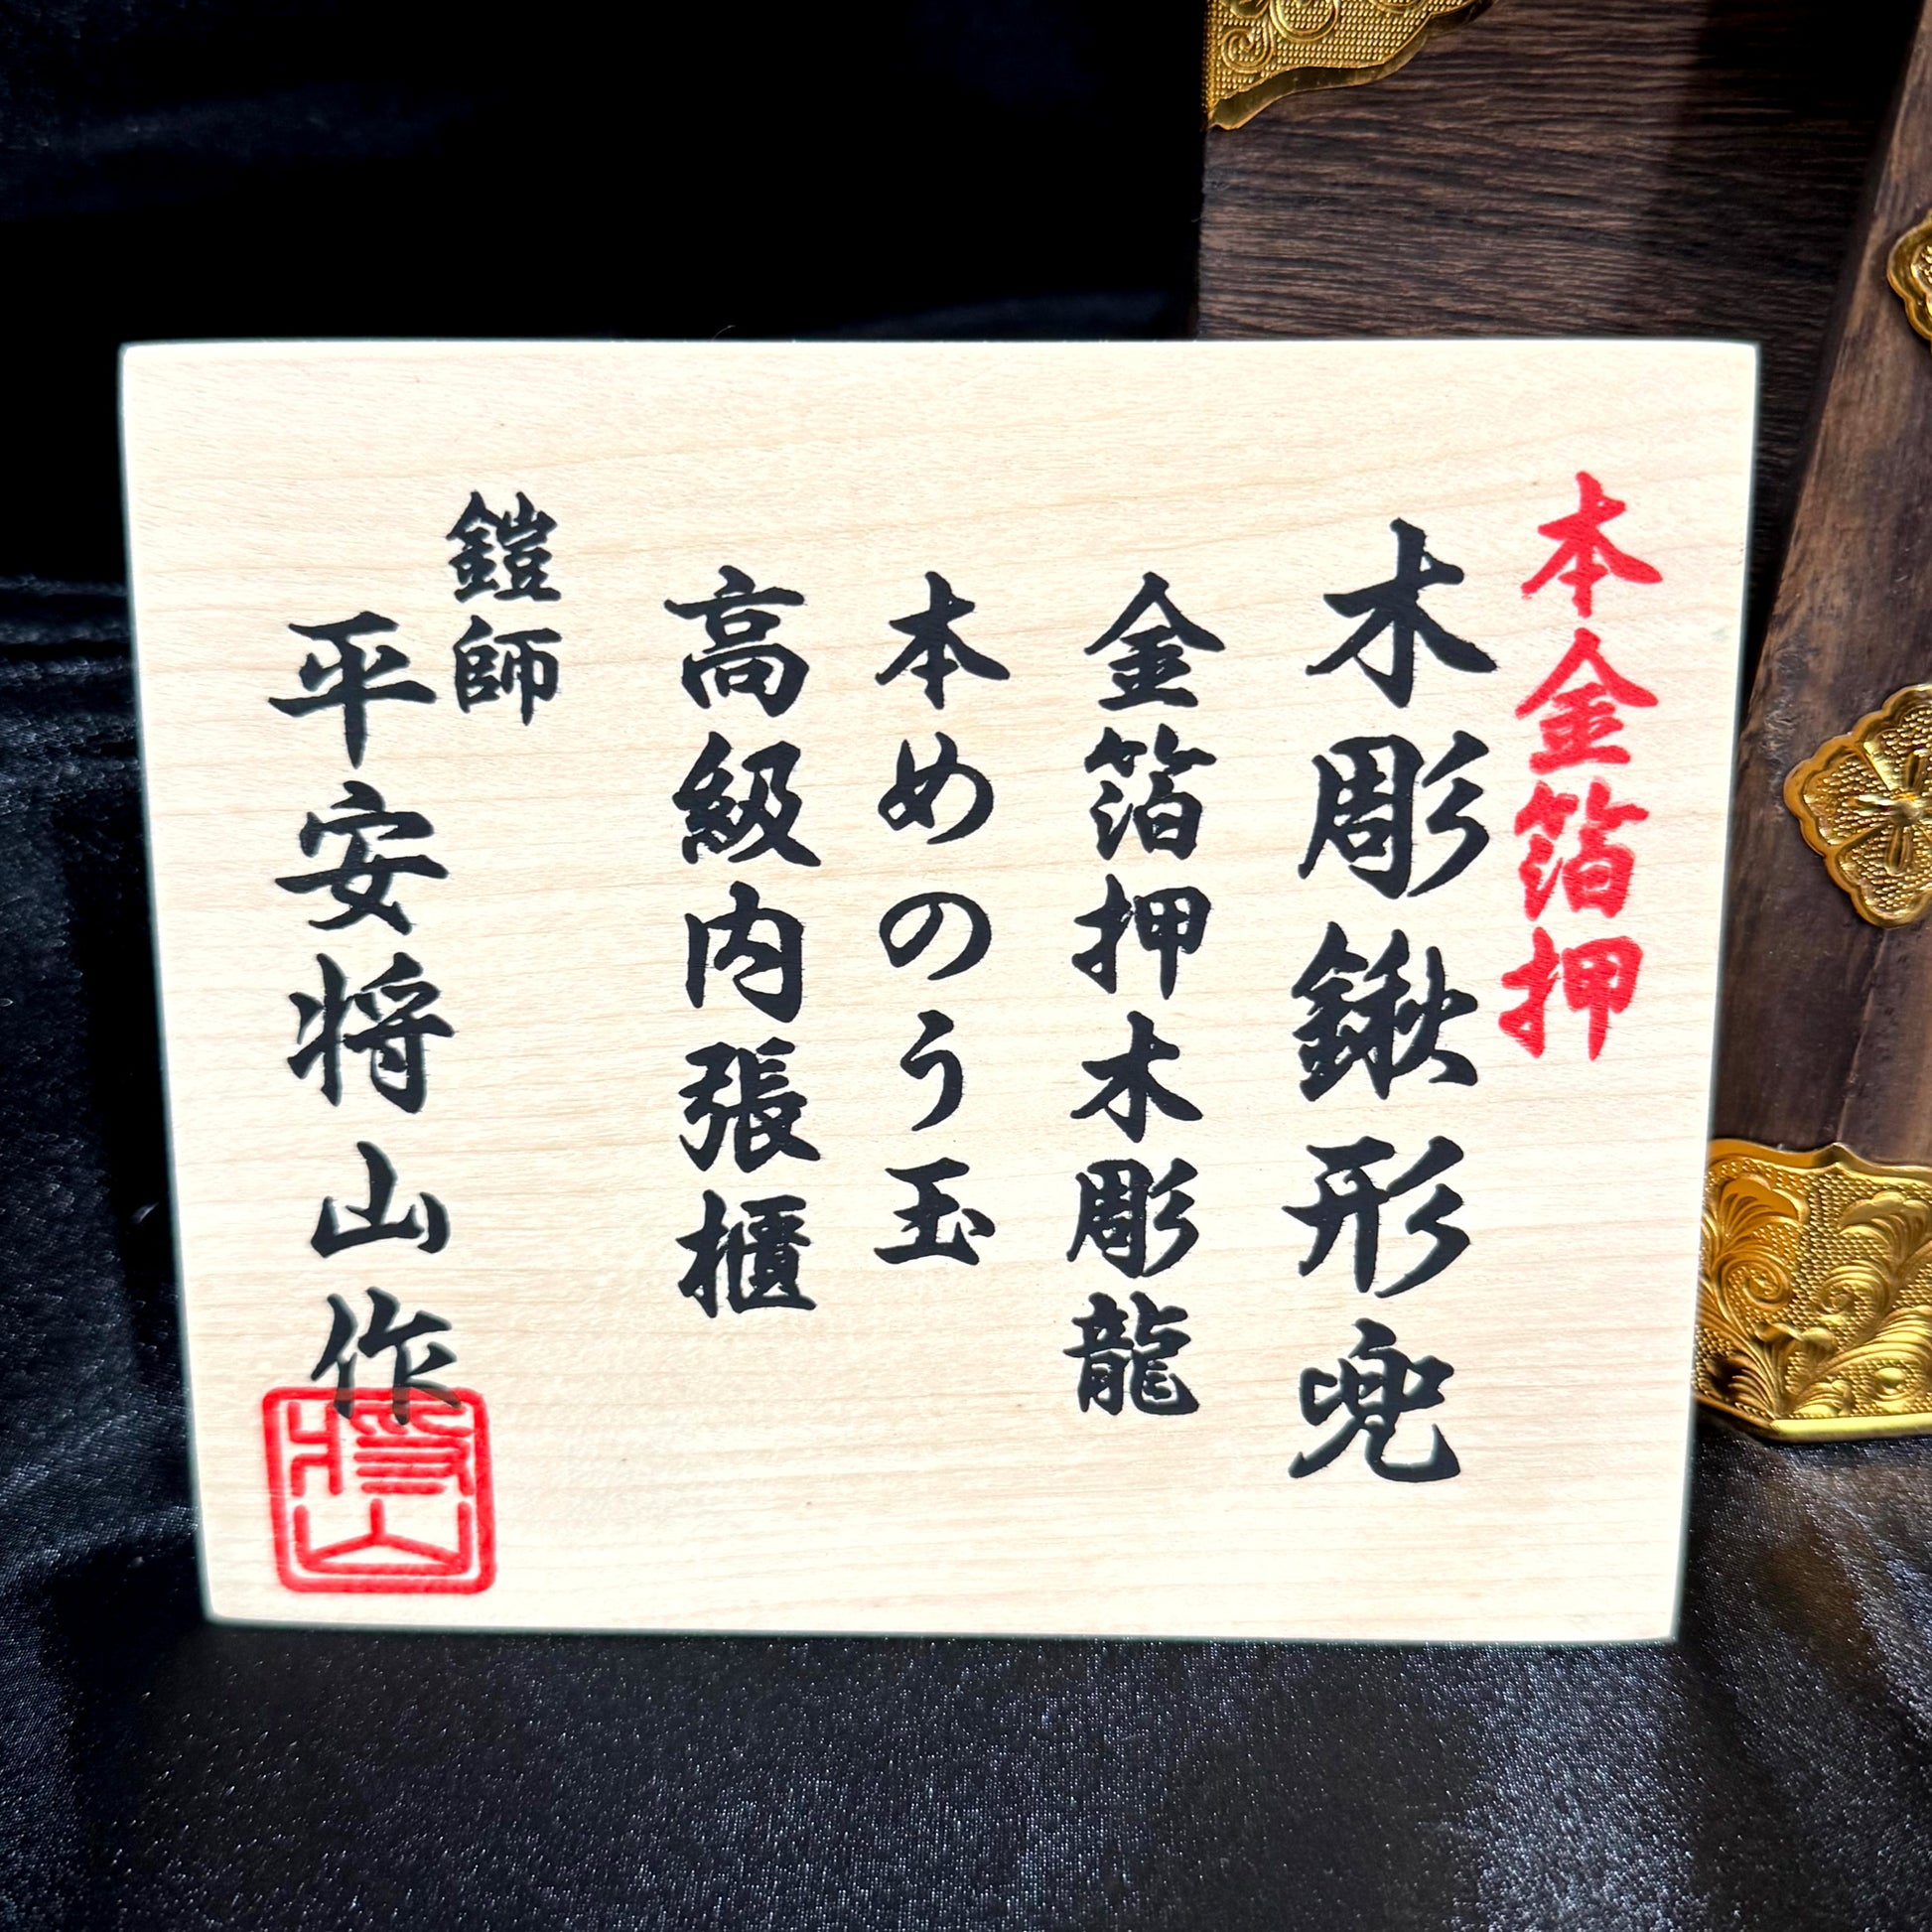 本金箔押
木彫鍬形兜
金箔押木彫龍
本めのう玉
高級内張櫃
鎧師
平安将山作
将山